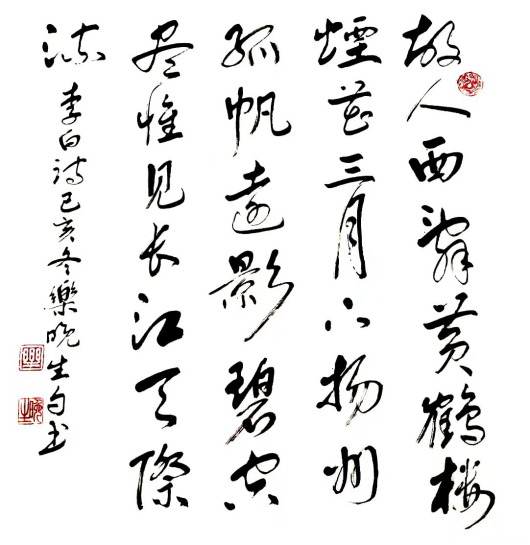 故人西辭黄鶴樓
煙花三月下揚州
孤帆遠影碧空
尽惟见长江天際
流
李白詩己亥冬樂晚生书